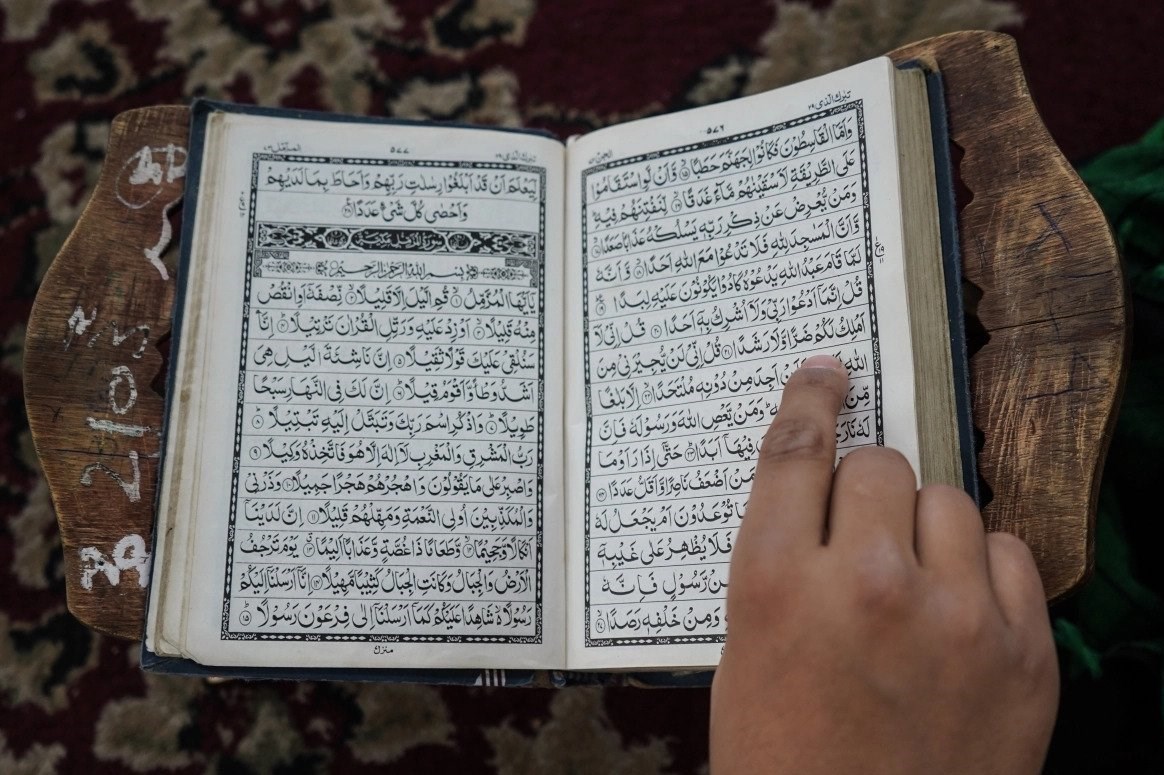 تبٰرك الذی ٢٩
٥٧٦
الجن ٧٢
وَاَمَّا الْقَاسِطُوْنَ فَكَانُوْا لِجَهَنَّمَ حَطَبًا ۙ۝١٥ وَّاَنْ لَّوِ اسْتَقَامُوْا
عَلَى الطَّرِيْقَةِ لَاَسْقَيْنٰهُمْ مَّآءً غَدَقًا ۙ۝١٦ لِّنَفْتِنَهُمْ فِيْهِ ؕ
وَمَنْ يُّعْرِضْ عَنْ ذِكْرِ رَبِّهٖ يَسْلُكْهُ عَذَابًا صَعَدًا ۙ۝١٧
وَّاَنَّ الْمَسٰجِدَ لِلّٰهِ فَلَا تَدْعُوْا مَعَ اللّٰهِ اَحَدًا ۙ۝١٨ وَّاَنَّهٗ
لَمَّا قَامَ عَبْدُ اللّٰهِ يَدْعُوْهُ كَادُوْا يَكُوْنُوْنَ عَلَيْهِ لِبَدًا ؕ۝١٩
قُلْ اِنَّمَآ اَدْعُوْا رَبِّيْ وَلَآ اُشْرِكُ بِهٖٓ اَحَدًا ۝٢٠ قُلْ اِنِّيْ لَآ
اَمْلِكُ لَكُمْ ضَرًّا وَّلَا رَشَدًا ۝٢١ قُلْ اِنِّيْ لَنْ يُّجِيْرَنِيْ مِنَ
اللّٰهِ لَنْ اَجِدَ مِنْ دُوْنِهٖ مُلْتَحَدًا ۙ۝٢٢ اِلَّا بَلٰغًا
مِّنَ وَمَنْ يَّعْصِ اللّٰهَ وَرَسُوْلَهٗ فَاِنَّ
لَهٗ نَارَ فِيْهَآ اَبَدًا ؕ۝٢٣ حَتّٰٓى اِذَا رَاَوْا مَا
مَنْ اَضْعَفُ نَاصِرًا وَّاَقَلُّ عَدَدًا ۝٢٤
تُوْعَدُوْنَ اَمْ يَجْعَلُ لَهٗ
فَلَا يُظْهِرُ عَلٰى غَيْبِهٖٓ
مِنْ رَّسُوْلٍ فَاِنَّهٗ
وَمِنْ خَلْفِهٖ رَصَدًا ۙ۝٢٧
تبٰرك الذی ٢٩
٥٧٧
المزمل ٧٣
لِّيَعْلَمَ اَنْ قَدْ اَبْلَغُوْا رِسٰلٰتِ رَبِّهِمْ وَاَحَاطَ بِمَا لَدَيْهِمْ
وَاَحْصٰى كُلَّ شَيْءٍ عَدَدًا ۝٢٨
سُوْرَةُ الْمُزَّمِّلِ مَكِّيَّةٌ
بِسْمِ اللّٰهِ الرَّحْمٰنِ الرَّحِيْمِ
يٰٓاَيُّهَا الْمُزَّمِّلُ ۙ۝١ قُمِ الَّيْلَ اِلَّا قَلِيْلًا ۙ۝٢ نِّصْفَهٗٓ اَوِ انْقُصْ
مِنْهُ قَلِيْلًا ۙ۝٣ اَوْ زِدْ عَلَيْهِ وَرَتِّلِ الْقُرْاٰنَ تَرْتِيْلًا ؕ۝٤ اِنَّا
سَنُلْقِيْ عَلَيْكَ قَوْلًا ثَقِيْلًا ۝٥ اِنَّ نَاشِئَةَ الَّيْلِ هِيَ
اَشَدُّ وَطْاً وَّاَقْوَمُ قِيْلًا ؕ۝٦ اِنَّ لَكَ فِي النَّهَارِ سَبْحًا
طَوِيْلًا ؕ۝٧ وَاذْكُرِ اسْمَ رَبِّكَ وَتَبَتَّلْ اِلَيْهِ تَبْتِيْلًا ؕ۝٨
رَبُّ الْمَشْرِقِ وَالْمَغْرِبِ لَآ اِلٰهَ اِلَّا هُوَ فَاتَّخِذْهُ وَكِيْلًا ۝٩
وَاصْبِرْ عَلٰى مَا يَقُوْلُوْنَ وَاهْجُرْهُمْ هَجْرًا جَمِيْلًا ۝١٠ وَذَرْنِيْ
وَالْمُكَذِّبِيْنَ اُولِي النَّعْمَةِ وَمَهِّلْهُمْ قَلِيْلًا ۝١١ اِنَّ لَدَيْنَآ
اَنْكَالًا وَّجَحِيْمًا ۙ۝١٢ وَّطَعَامًا ذَا غُصَّةٍ وَّعَذَابًا اَلِيْمًا ۝١٣ يَوْمَ تَرْجُفُ
الْاَرْضُ وَالْجِبَالُ وَكَانَتِ الْجِبَالُ كَثِيْبًا مَّهِيْلًا ۝١٤ اِنَّآ اَرْسَلْنَآ اِلَيْكُمْ
رَسُوْلًا شَاهِدًا عَلَيْكُمْ كَمَآ اَرْسَلْنَآ اِلٰى فِرْعَوْنَ رَسُوْلًا ؕ۝١٥
منزل